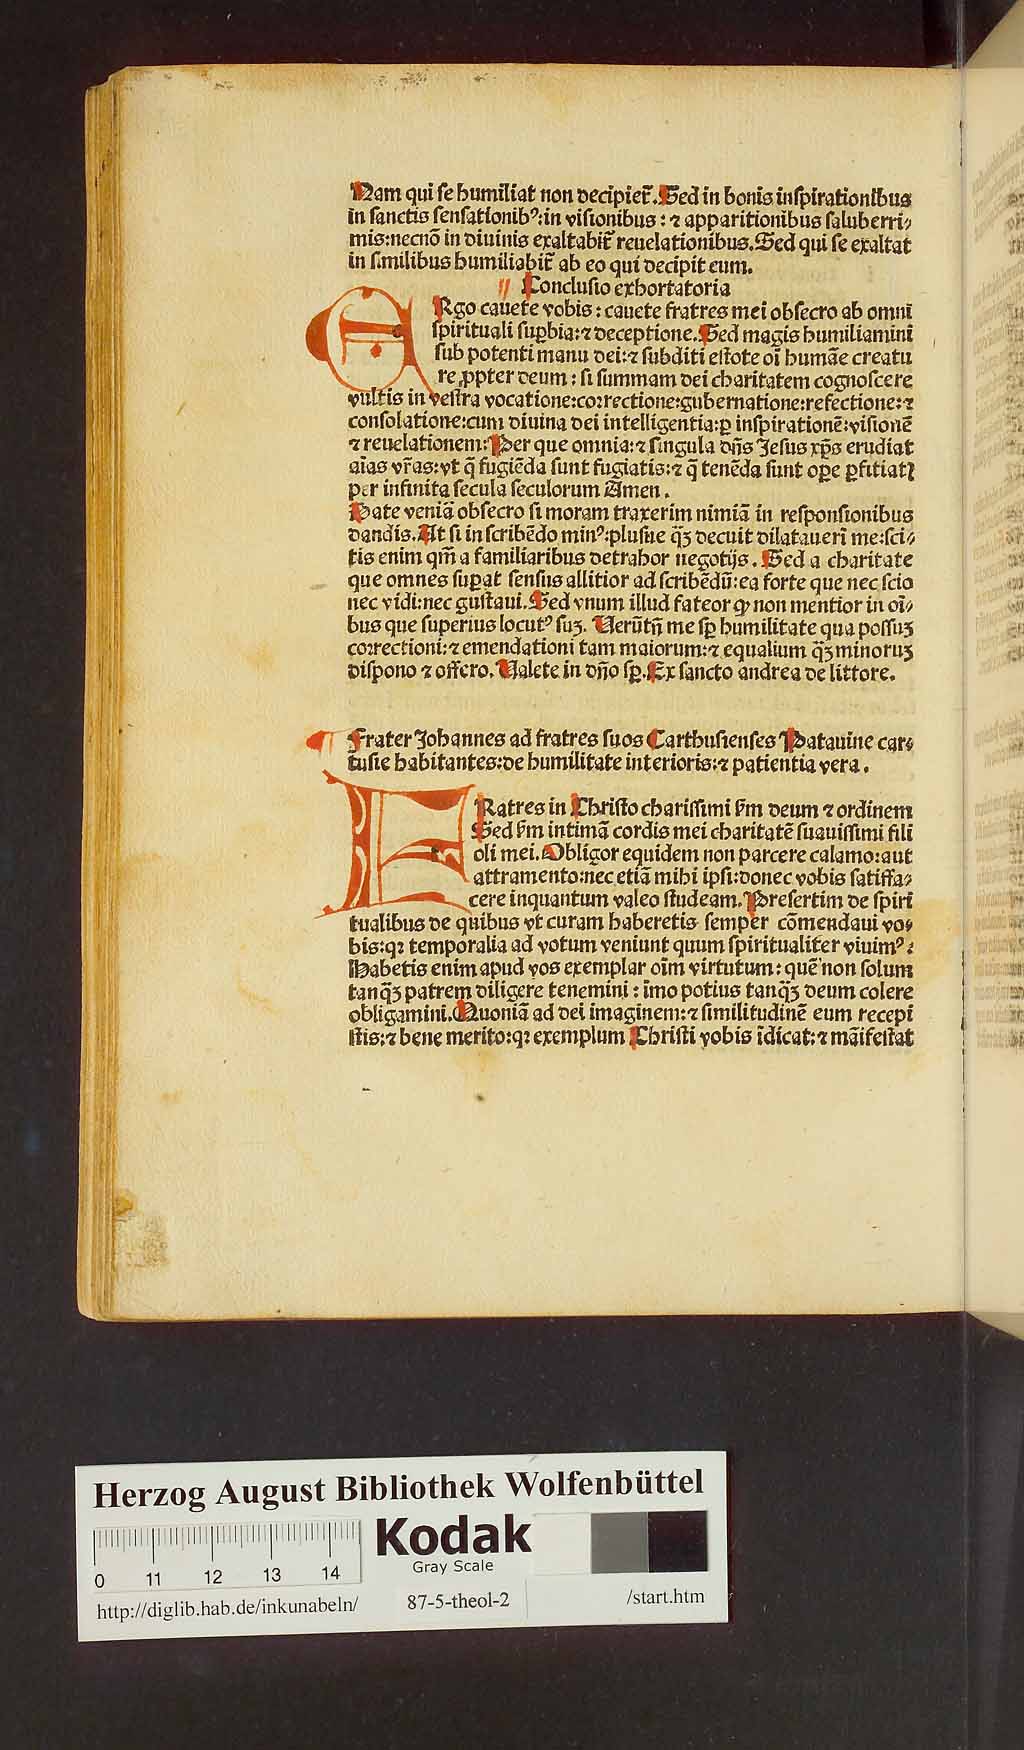 Nam qui se humiliat non decipiet᷑. Sed in bonis inspirationibus
in sanctis sensationibꝰ: in visionibus: ⁊ apparitionibus saluberri⸗
mis: necnō in diuinis exaltabit᷑ reuelationibus. Sed qui se exaltat
in similibus humiliabit᷑ ab eo qui decipit eum.
Conclusio exhortatoria
ERgo cauete vobis: cauete fratres mei obsecro ab omni
spirituali suꝑbia: ⁊ deceptione. Sed magis humiliamini
sub potenti manu dei: ⁊ subditi estote oī humāe creatu
re ꝓpter deum: si summam dei charitatem cognoscere
vultis in vestra vocatione: correctione: gubernatione: refectione: ⁊
consolatione: cum diuina dei intelligentia: ꝑ inspirationē: visionē
⁊ reuelationem: Per que omnia: ⁊ singula dn̄s Jesus xp̄s erudiat
aīas vr̄as: vt q̄ fugiēda sunt fugiatis: ⁊ q̄ tenēda sunt oꝑe ꝑfitiatꝭ
per infinita secula seculorum Amen.
Date veniā obsecro si moram traxerim nimiā in responsionibus
dandis. At si in scribēdo minꝰ: plusue qȝ̄ decuit dilataueri me: sci⸗
tis enim qm̄ a familiaribus detrahor negotijs. Sed a charitate
que omnes suꝑat sensus allitior ad scribēdū: ea forte que nec scio
nec vidi: nec gustaui. Sed vnum illud fateor ꝙ non mentior in oī⸗
bus que superius locutꝰ suȝ. Verūtn̄ me sꝑ humilitate qua possuȝ
correctioni: ⁊ emendationi tam maiorum: ⁊ equalium qȝ̄ minoruȝ
dispono ⁊ offero. Valete in dn̄o sꝑ. Ex sancto andrea de littore.
Frater Johannes ad fratres suos Carthusienses Patauine car⸗
tusie habitantes: de humilitate interioris: ⁊ patientia vera.
FRatres in Christo charissimi ẜm deum ⁊ ordinem
Sed ẜm intimā cordis mei charitatē suauissimi fili
oli mei. Obligor equidem non parcere calamo: aut
attramento: nec etiā mihi ipsi: donec vobis satiffa⸗
cere inquantum valeo studeam. Presertim de spiri
tualibus de quibus vt curam haberetis semper cōmendaui vo⸗
bis: qꝛ temporalia ad votum veniunt quum spiritualiter viuimꝰ:
Habetis enim apud vos exemplar oīm virtutum: quē non solum
tanqȝ̄ patrem diligere tenemini: īmo potius tanqȝ̄ deum colere
obligamini. Quoniā ad dei imaginem: ⁊ similitudinē eum recepi
stis: ⁊ bene merito: qꝛ exemplum Christi vobis īdicat: ⁊ māifestat
Herzog August Bibliothek Wolfenbüttel
Kodak
Gray Scale
0 11 12 13 14
http://diglib.hab.de/inkunabeln/ 87-5-theol-2 /start.htm